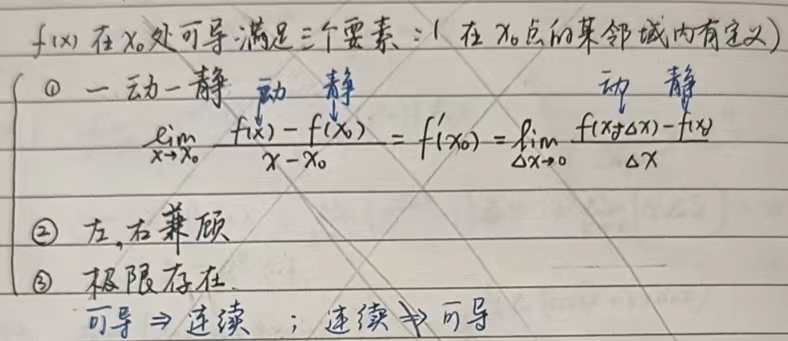 f(x) 在 x₀ 处可导满足三个要素：( 在 x₀ 点的某邻域内有定义)
① 一动一静 动 静 动 静
lim x→x₀ (f(x) - f(x₀))/(x - x₀) = f'(x₀) = lim Δx→0 (f(x₀+Δx) - f(x₀))/Δx
② 左,右兼顾
③ 极限存在.
可导 ⇒ 连续 ; 连续 ⇏ 可导